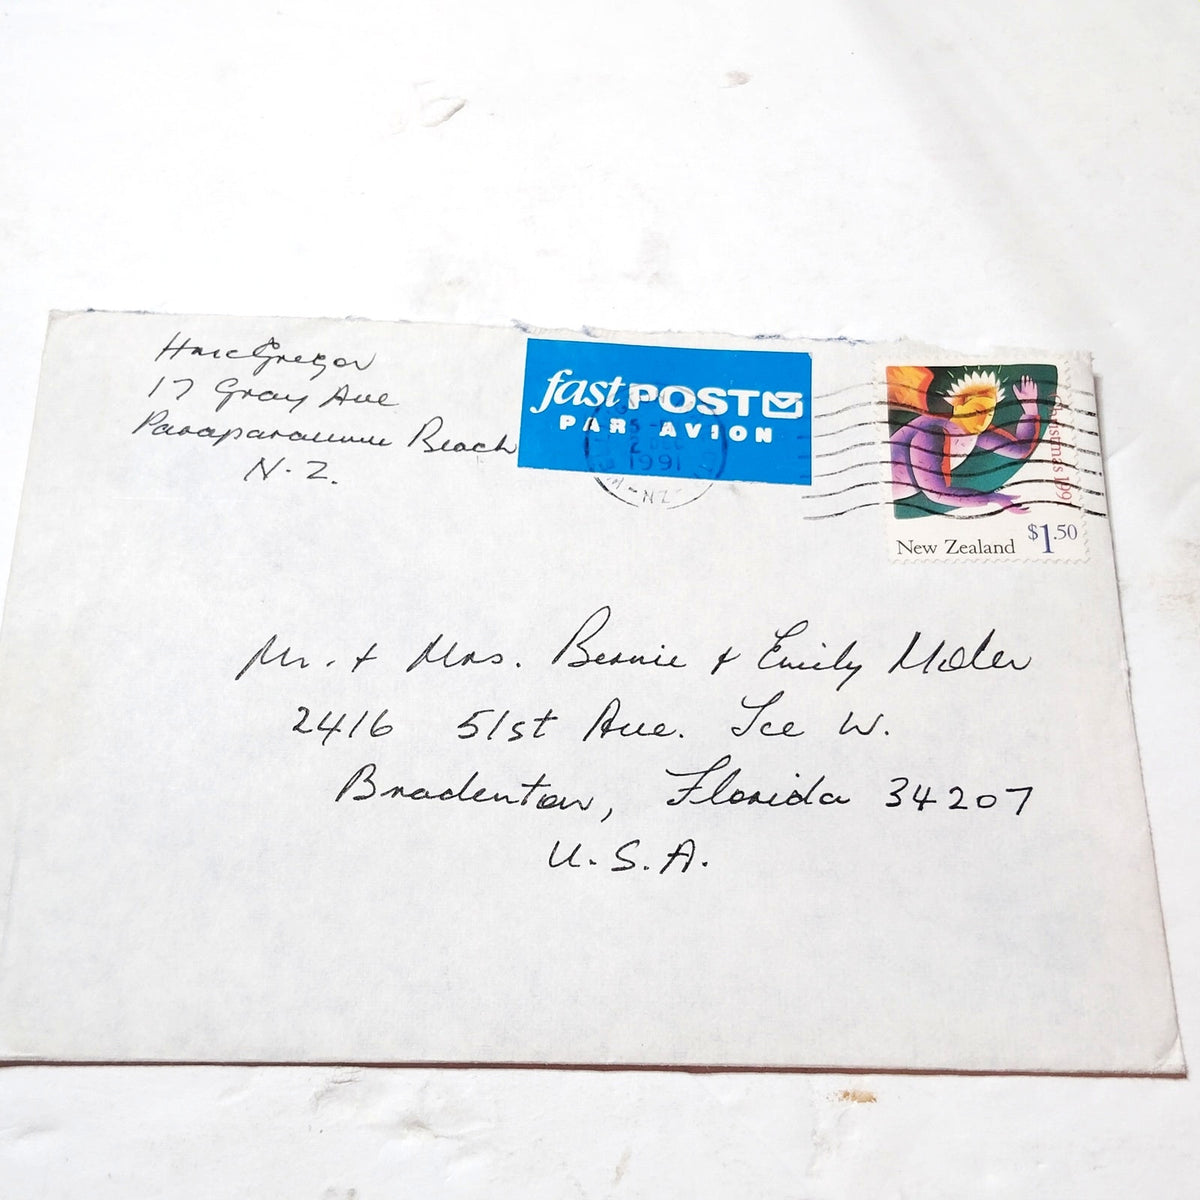 H McGregor
17 Gray Ave
Paraparaumu Beach
N.Z.
fast POST
PAR AVION
5-
2 DEC
1991
NZ
Christmas 199
New Zealand $1.50
Mr. & Mrs. Bernie & Emily Moler
2416 51st Ave. Tce W.
Bradenton, Florida 34207
U.S.A.